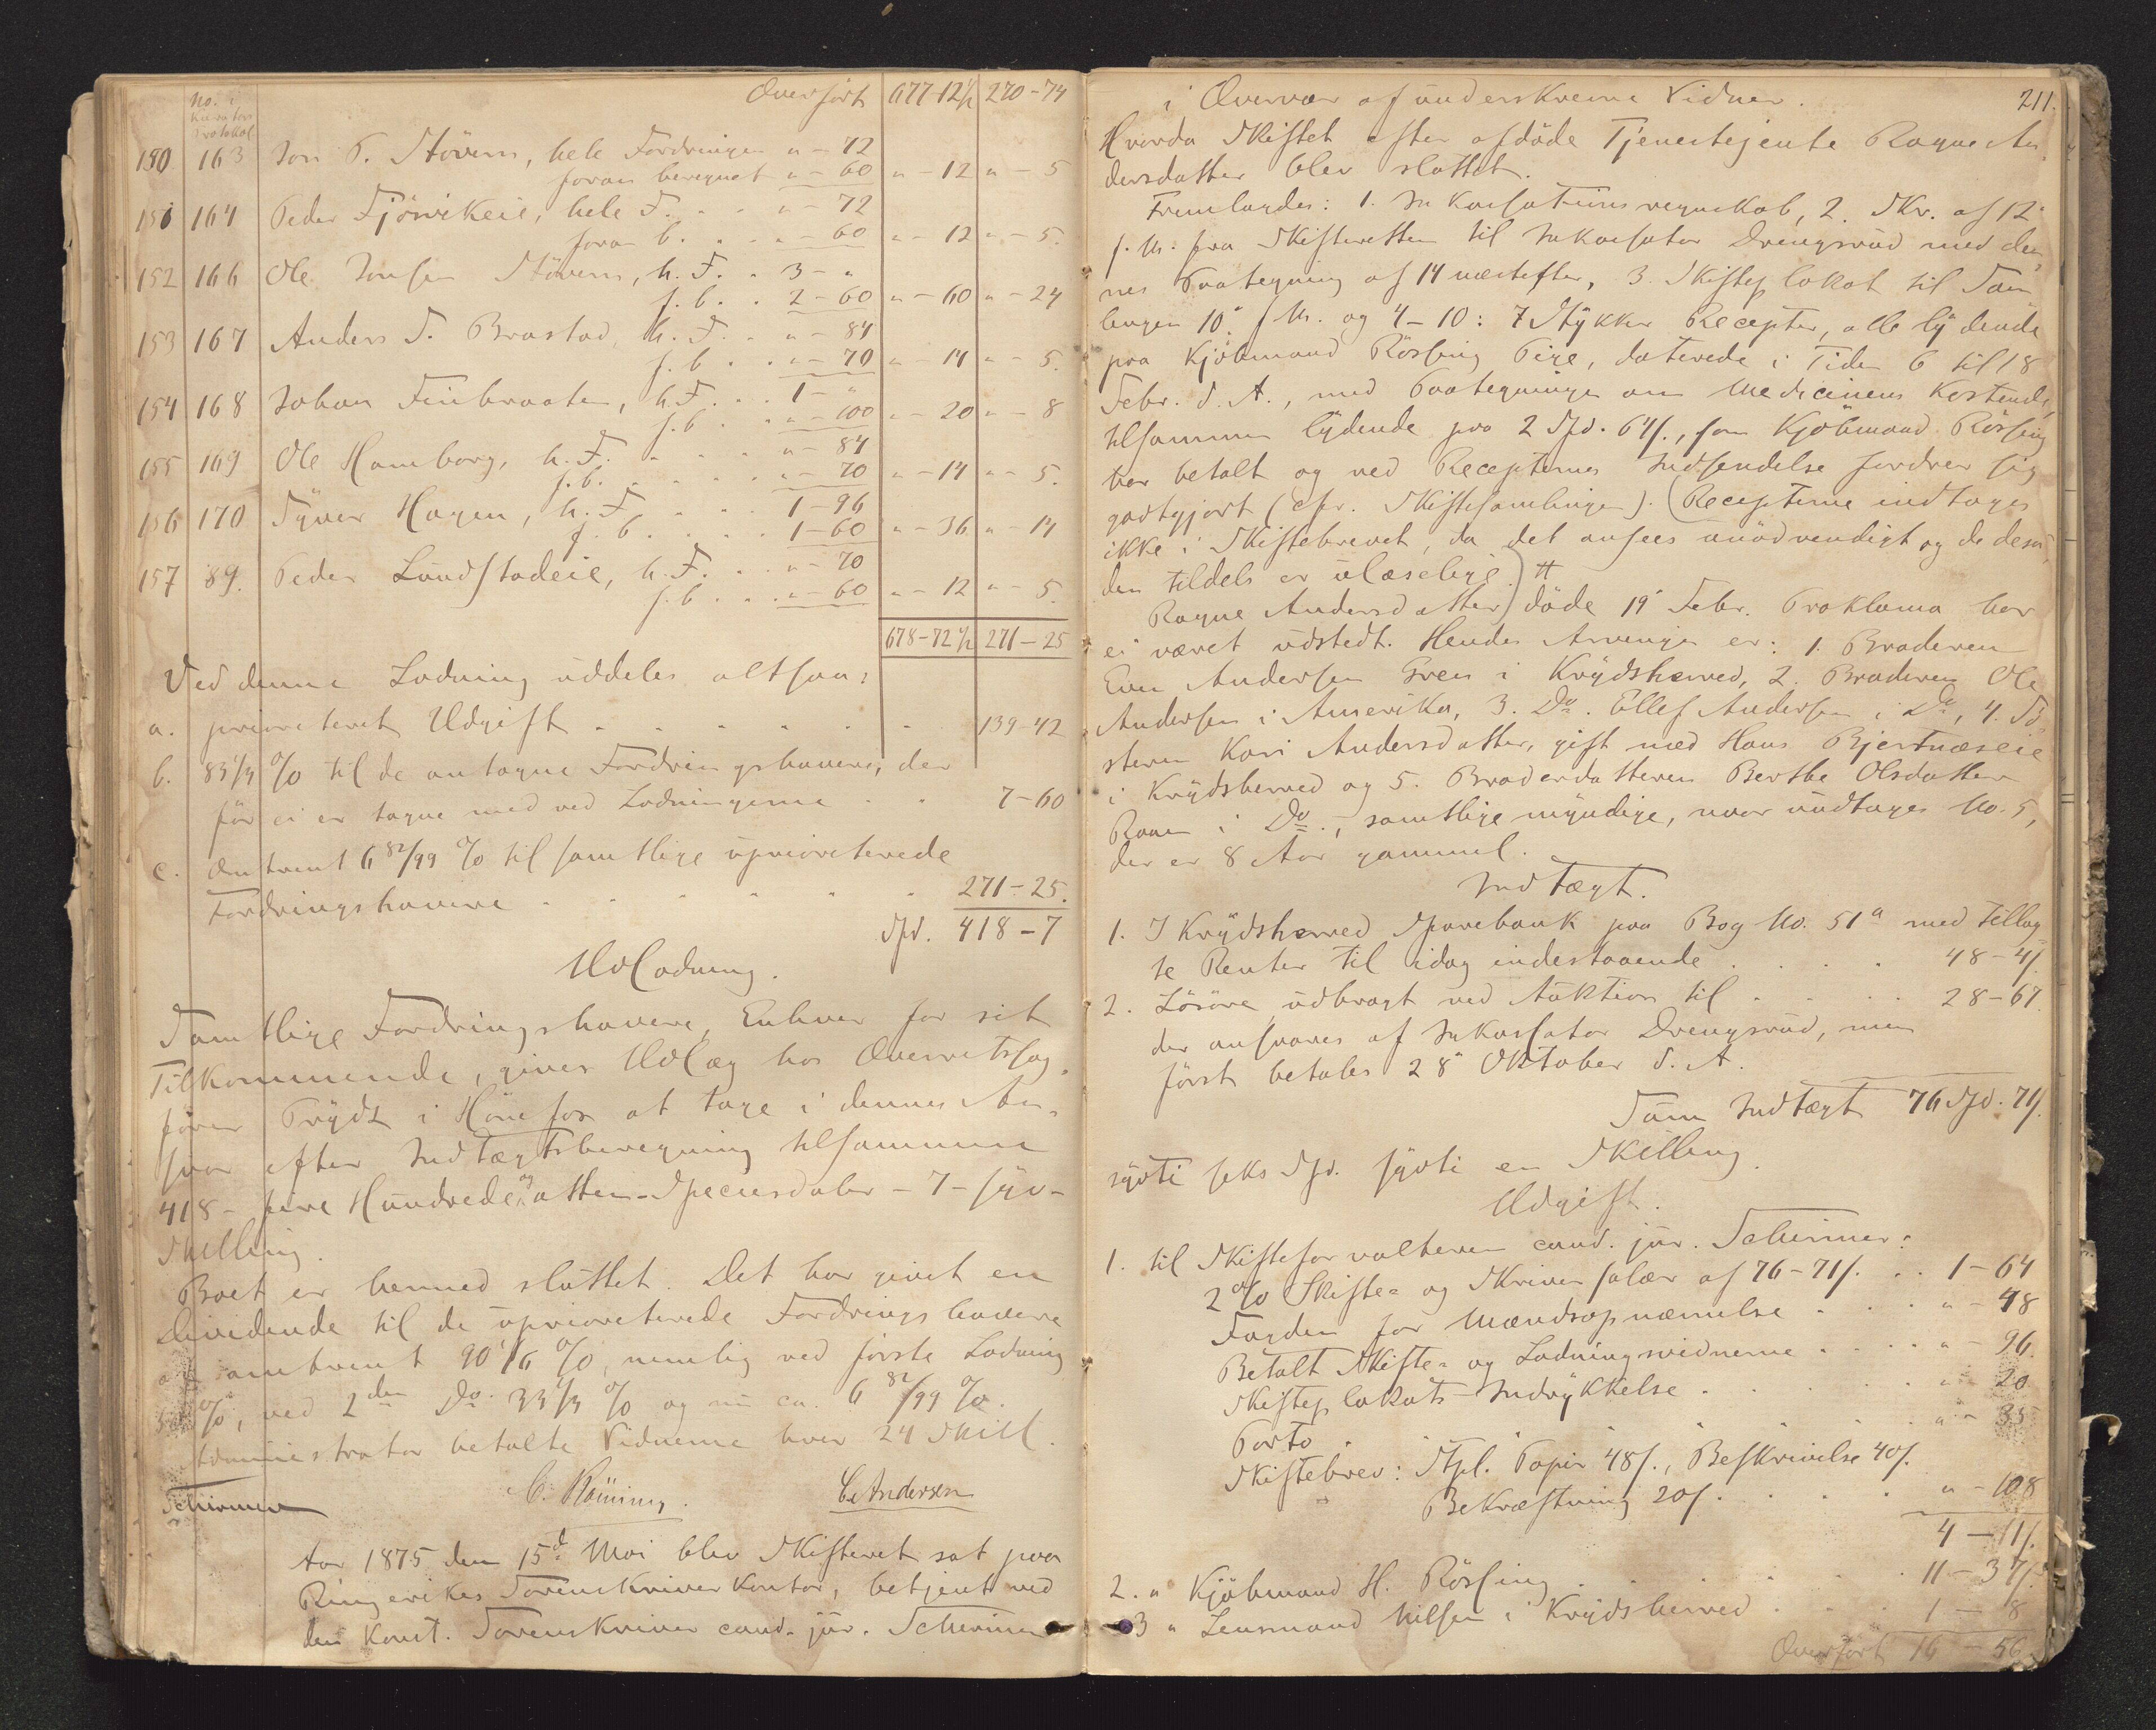 No. i
Kurators
Protokol.
Overført 677-12½ 270-74
150. 163 Jon P. Støvern, hele Fordringen " - 72
foran beregnet " - 60 " - 12 " - 5
151 164 Peder Fjösvikeie, hele F. . . " - 72
foran b. . . " - 60 " - 12 " - 5.
152 166 Ole Jonsen Støvern, h. F. . 3 - "
f. b. . . 2 - 60 " - 60 " - 24
153 167 Anders T. Brastad, h. F. . " - 84
f. b. . . " - 70 " - 14 " - 5.
154 168 Johan Finbraaten, h. F. . . 1 - "
f. b. . . " - 100 " - 20 " - 8
155 169 Ole Hamborg, h. F. . . . " - 84
f. b. . . . " - 70 " - 14 " - 5.
156 170 Syver Hagen, h. F. . . . 1 - 96
f. b. . . . 1 - 60 " - 36 " - 14
157 89. Peder Lundstadeie, h. F. . . " - 70
f. b. . . " - 60 " - 12 " - 5.
678-72½ 271-25
Ved denne Lodning uddeles altsaa:
a. prioriteret Udgift . . . . . . 139-42
b. 83⅓ % til de antagne Fordringshavere, der
før ei er tagne med ved Lodningerne . . 7-60
c. Omtrent 6 82/99 % til samtlige uprioriterede
Fordringshavere . . . . . . 271-25.
Spd. 418-7
Udlodning.
Samtlige Fordringshavere, Enhver for sit
Tilkommende, gives Udlæg hos Overretssag-
fører Trydz i Hönefos at tage i dennes An-
svar efter Indtægtsberegning tilsammen
418 - fire Hundrede og atten - Speciesdaler - 7 - syv -
Skilling.
Boet er hermed sluttet. Det har givet en
Dividende til de uprioriterede Fordringshavere
af omtrent 90 1/6 %, nemlig ved første Lodning
50 %, ved 2den Do. 33⅓ % og nu ca. 6 82/99 %.
Administrator betalte Vidnerne hver 24 Skill.
Schirmer C. Rönning. C. Andersen
Aar 1875 den 15de Mai blev Skifteret sat paa
Ringerikes Sorenskriverkontor, betjent ved
den konst. Sorenskriver cand. jur. Schirmer
211.
i Overvær af underskrevne Vidner.
Hvorda Skiftet efter afdöde Tjenestejente Ragne An-
dersdatter blev sluttet.
Fremlagdes: 1. Inkassationsregnskab, 2. Skr. af 12'
f. M. fra Skifteretten til Inkassator Drengsrud med den-
nes Paategning af 14 næstefter, 3. Skifteplakat til Sam-
lingen 10' f. M. og 4-10: 7 Stykker Recepter, alle lydende
paa Kjöbmand Rössing Pige, daterede i Tiden 6 til 18
Febr. d. A., med Paategninger om Medicinens Kostende,
tilsammen lydende paa 2 Spd. 64 s., som Kjöbmand Rössing
har betalt og ved Recepternes Indsendelse fordrer sig
godtgjort (cfr. Skiftesamlingen). (Recepterne indtages
ikke i Skiftebrevet, da det ansees unödvendigt og de desu-
den tildels er ulæselige.)
Ragne Andersdatter döde 19' Febr. Proklama har
ei været udstedt. Hendes Arvinger er: 1. Broderen
Even Andersen Green i Krydsherred, 2. Broderen Ole
Andersen i Amerika, 3. Do. Ellef Andersen i Do., 4. Sö-
steren Kari Andersdatter, gift med Hans Bjertnæseie
i Krydsherred og 5. Broderdatteren Berthe Olsdatter
Raaen i Do., samtlige myndige, naar undtages No. 5,
der er 8 Aar gammel.
Indtægt.
1. I Krydsherred Sparebank paa Bog No. 51a med tillag-
te Renter til idag indestaaende . . . . 48-4 s.
2. Lösöre, udbragt ved Auktion til . . . . 28-67.
der ansvares af Inkassator Drengsrud, men
först betales 28' Oktober d. A.
Sum Indtægt 76 Spd. 71 s.
sytti seks Spd. sytti en Skilling.
Udgift.
1. til Skifteforvalteren cand. jur. Schirmer:
2 % Skifte- og Skriversalær af 76-71 s. . . 1 - 64
Fogden for Mændsopnævnelse . . . . " - 48
Betalt Skifte- og Lodningsvidnerne . . . . " - 96.
Skifteplakats Indrykkelse . . . . . " - 20
Porto . . . . . . " - 35
Skiftebrev: Stpl. Papir 48 s., Beskrivelse 40 s.
Bekræftning 20 s. . . . . " - 108
4 - 11 s.
2. " Kjöbmand H. Rössing . . . . . 11 - 37 s.
3 " Lensmand Nilsen i Krydsherred . . . 1 - 8
Overført 16 - 56